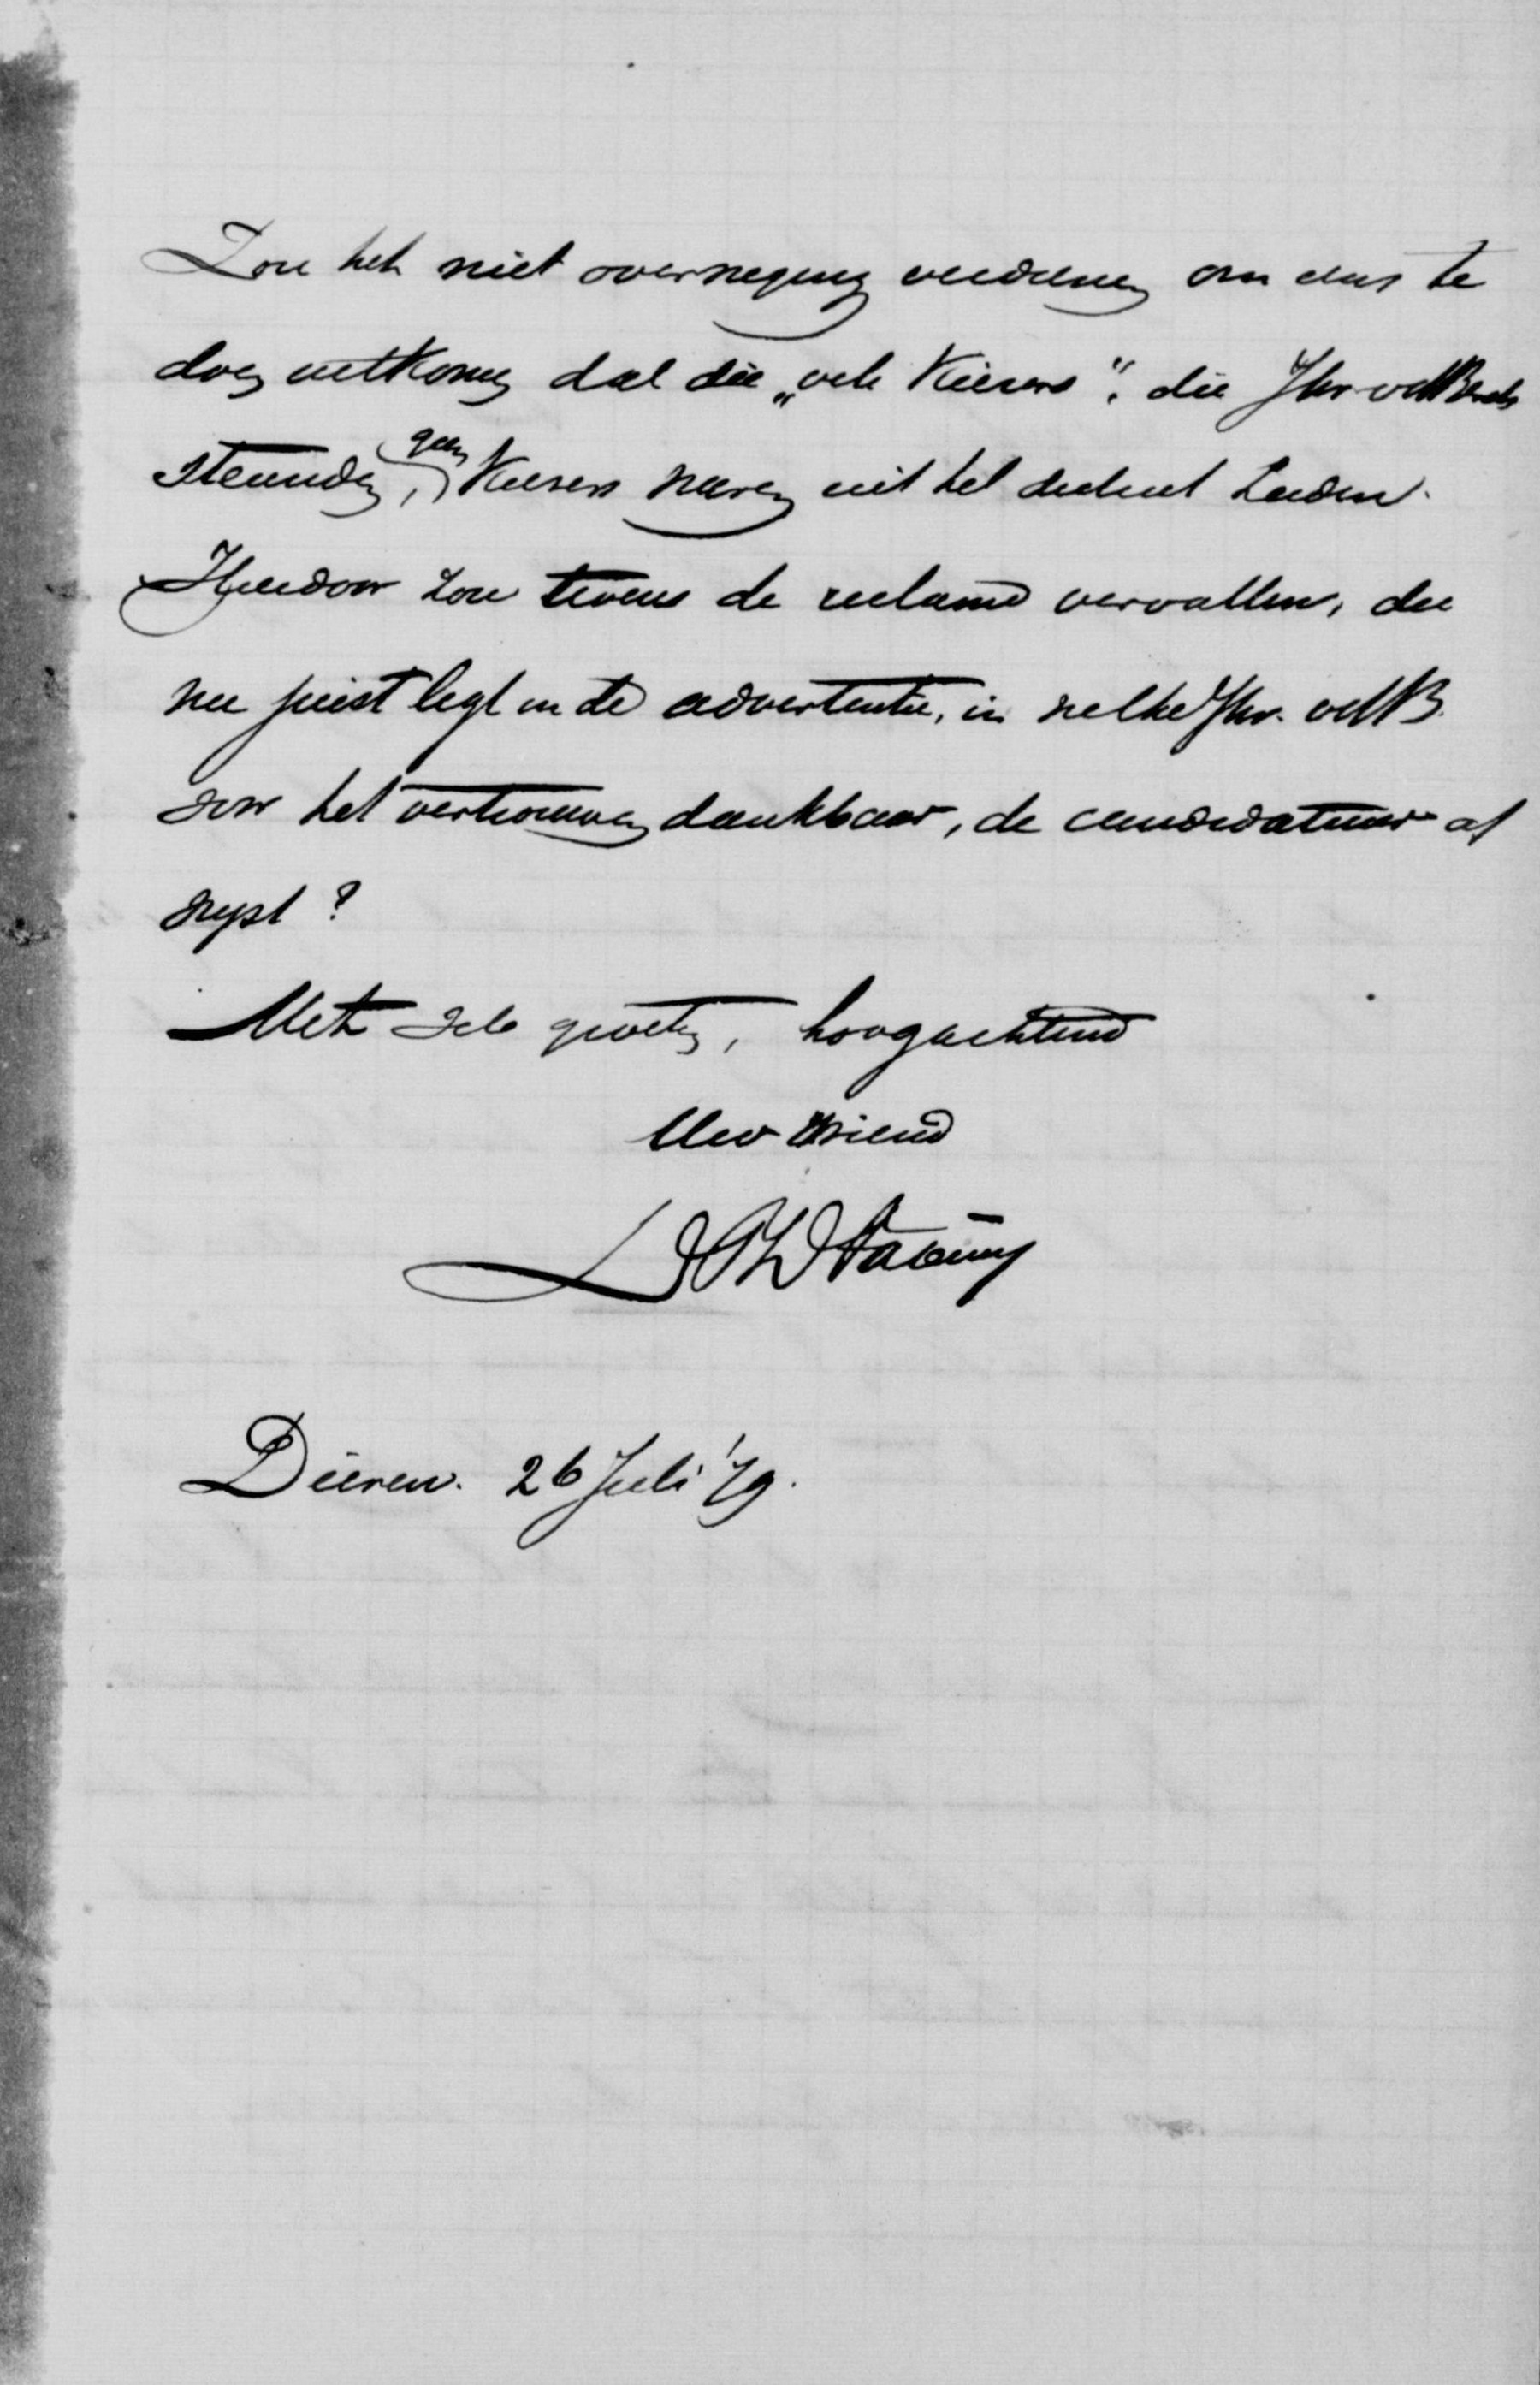 Zou het niet overweging verdienen om eens te
doen uitkomen dat die „vele Kiezers”, die Jhr vd
steunden, geen Kiezers waren uit het district Leiden.
Hierdoor zou tevens de reclame vervallen, die
nu juist legt in de advertentie, in welke Jhr. vd B.
voor het vertrouwen dankbaar, de candidatuur af
wyst?
Met vele groeten, hoogachtend
Uw vriend
Dieren. 26 Juli '79.